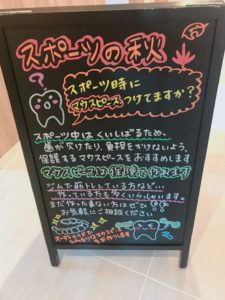 スポーツの秋
スポーツ時に
マウスピースつけてますか?
スポーツ中はくいしばるため、
歯が欠けたり、負担をかけないよう、
保護するマウスピースをおすすめします
マウスピースは保険で作れます
ジムで筋トレしている方など…
作っている方も多くいらっしゃいます。
まだ作った事ない方はぜひ!!
お気軽にご相談ください